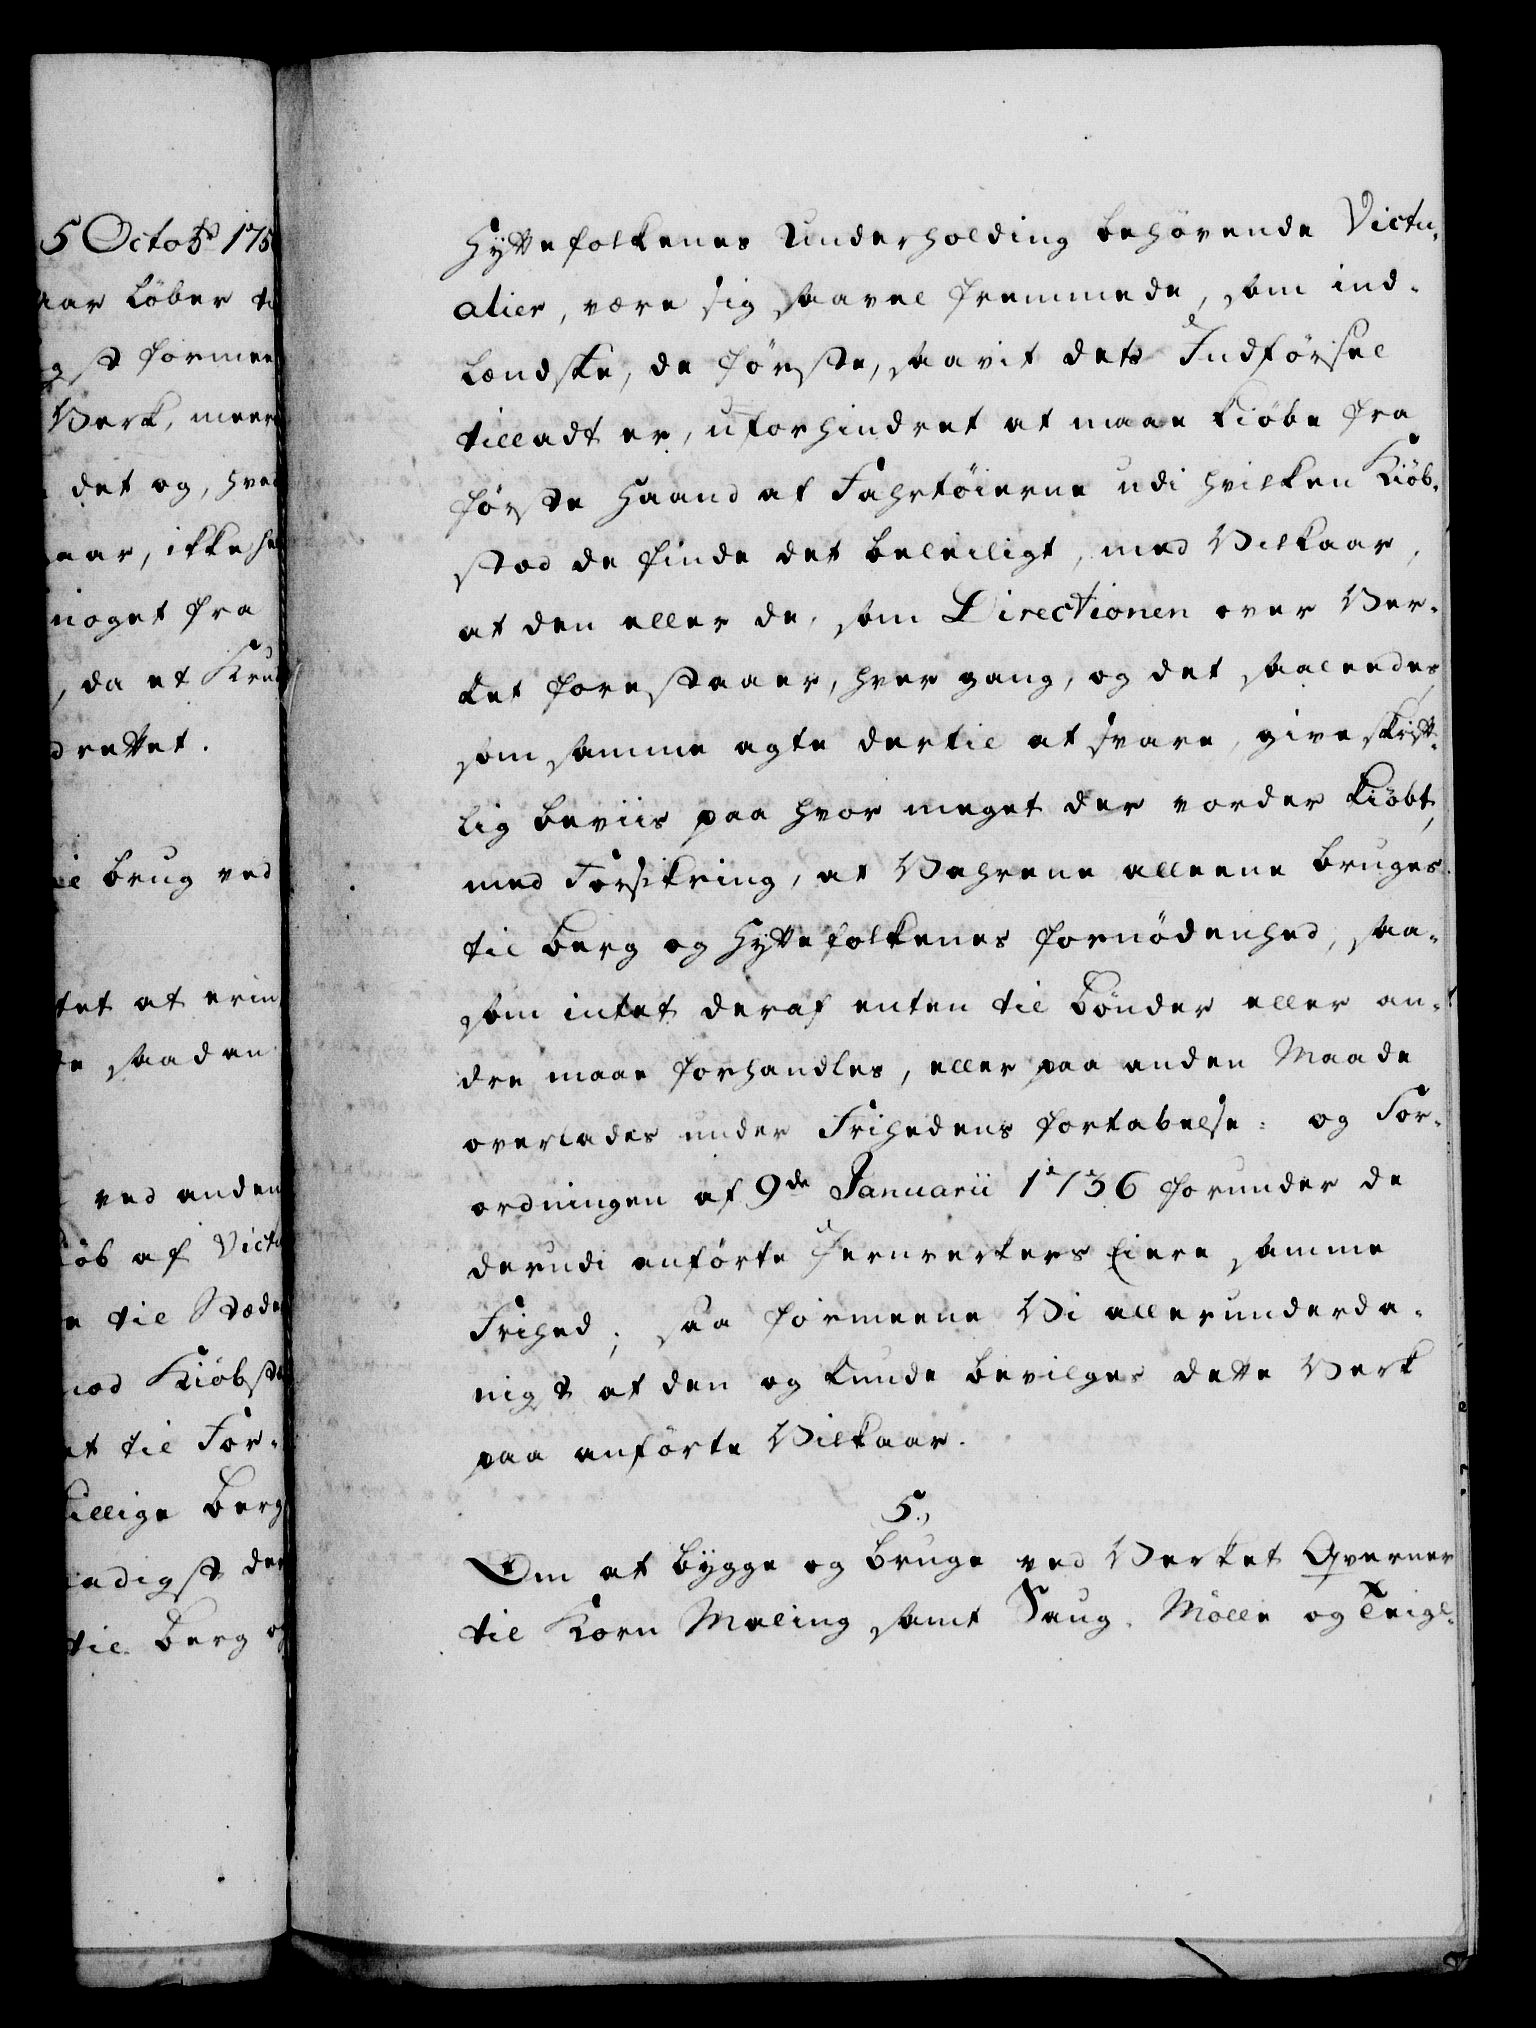 5 Octobr 175
aar löber ti
gst formee
Verk, meer
det og, hved
aar, ikke he
noget fra
, da et Krud
drettet.
il brug ved
tet at erin
e saadan
ved anden
iöb af Victu
e til Stæde
mod Kiöbst
at til For-
killige Berg
aadigst der
til Berg og
Hyttefolkenes Underholding behøvende Victu-
alier, være sig saavel fremmede, som ind-
landske, de første, saavit dets Indførsel
tilladt er, uforhindret at maae kiöbe fra
første Haand af Fahrtöierne udi hvilken Kiöb-
stad de finde det beleiligt, med Vilkaar,
at den eller de, som Directionen over Ver-
ket forestaaer, hver gang, og det saaleedes,
som samme agte dertil at svare, give skrift-
lig Beviis paa hvor meget der vorder kiöbt,
med Forsikring, at Vahrene alleene bruges
til Berg og Hyttefolkenes fornödenhed, saa-
som intet deraf enten til Bönder eller an-
dre maae forhandles, eller paa anden Maade
overlades under Frihedens fortabelse: og For-
ordningen af 9de Januarii 1736 forunder de
derudi anførte Jernverkers Eiere samme
Frihed; saa formeene Vi allerunderda-
nigst at den og kunde bevilges dette Verk
paa anførte Vilkaar.
5.,
Om at bÿgge og bruge ved Verket Qverner
til Korn Maling samt Saug-Mölle og Teigl-